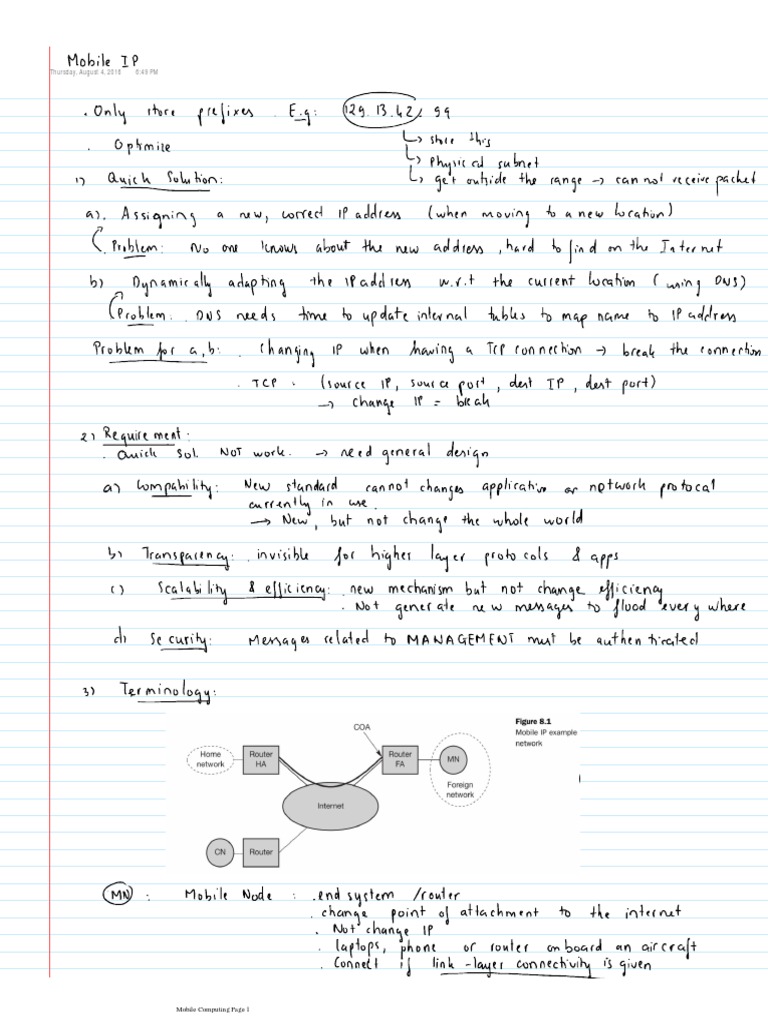 Mobile IP
Thursday, August 4, 2016 6:49 PM
. Only store prefixes . E.g: 129.13.42. 99
. Optimize ↳ store this
↳ Physical subnet
1) Quick Solution: ↳ get outside the range → can not receive packet
a). Assigning a new, correct IP address (when moving to a new location)
Problem: No one knows about the new address, hard to find on the Internet
b) Dynamically adapting the IP address w.r.t the current location (using DNS)
Problem: DNS needs time to update internal tables to map name to IP address
Problem for a, b: . Changing IP when having a TCP connection → break the connection
. TCP : (source IP, source port, dest IP, dest port)
→ change IP = break
2) Requirement:
. Quick Sol. NOT work. → need general design
a) Compability: New standard cannot changes application or network protocal
currently in use.
→ New, but not change the whole world
b) Transparency: . invisible for higher layer protocols & apps
c) Scalability & efficiency: . new mechanism but not change efficiency
. Not generate new messages to flood every where
d) Security: Messages related to MANAGEMENT must be authenticated
3) Terminology:
Figure 8.1
Mobile IP example
network
COA
Home
network
Router
HA
Router
FA
MN
Foreign
network
Internet
CN
Router
MN : Mobile Node : . end system / router
. change point of attachment to the internet
. Not change IP
. laptops, phone or router on board an aircraft
. Connect if link-layer connectivity is given
Mobile Computing Page 1